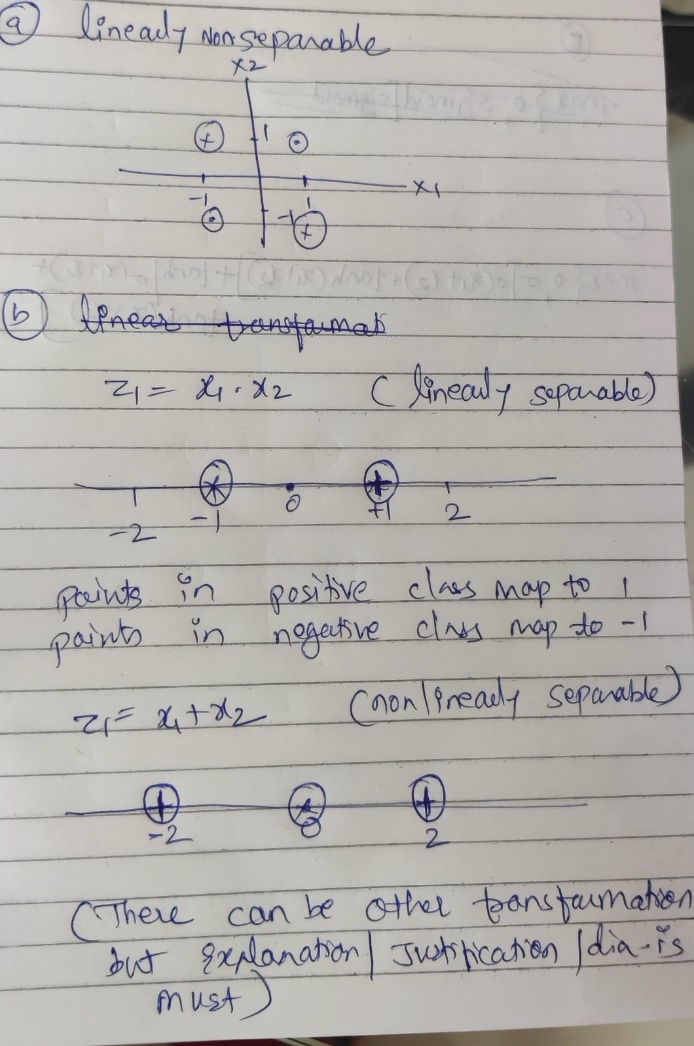 (a) linearly Nonseparable
x2
+ 1
x1
-1
-1 +
(b) linear transformat
z1 = x1 · x2 (linearly separable)
-2 -1 0 +1 2
points in positive class map to 1
points in negative class map to -1
z1 = x1 + x2 (nonlinearly separable)
+ +
-2 0 2
(There can be other transformation
but explanation / Justification / dia- is
must)